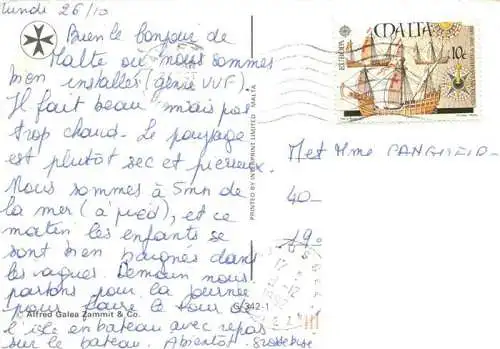 lundi 26/10
Bien le bonjour de
Malte où nous sommes
bien installés (genre VVF).
Il fait beau mais pas
trop chaud. Le paysage
est plutôt sec et pierreux.
Nous sommes à 5mn de
la mer (à pied), et ce
matin les enfants se
sont bien baignés dans
les vagues. Demain nous
partons pour la journée
pour faire le tour de
l'île en bateau avec repas
sur le bateau. A bientôt. Grosse bise
Alfred Galea Zammit & Co.
G/342-1
PRINTED BY INTERPRINT LIMITED MALTA
EUROPA
MALTA
10c
M et Mme
40-